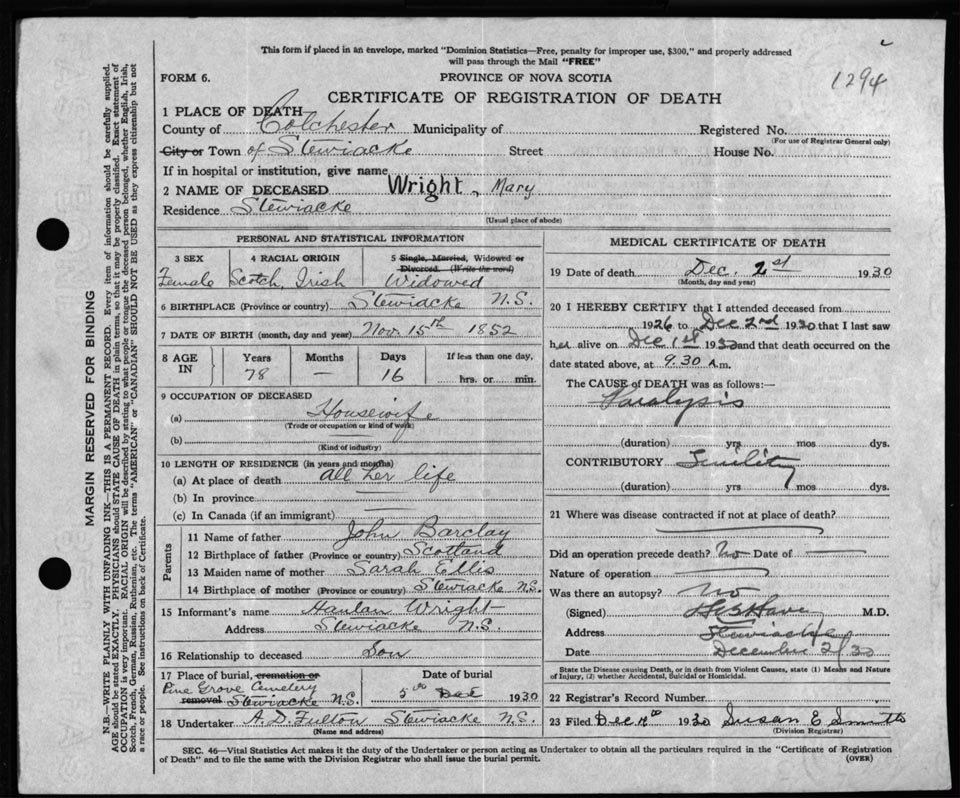 This form if placed in an envelope, marked "Dominion Statistics—Free, penalty for improper use, $300," and properly addressed
will pass through the Mail "FREE"
FORM 6.
PROVINCE OF NOVA SCOTIA
1294
CERTIFICATE OF REGISTRATION OF DEATH
1 PLACE OF DEATH
County of Colchester Municipality of Registered No.
(For use of Registrar General only)
City or Town of Stewiacke Street House No.
If in hospital or institution, give name
2 NAME OF DECEASED Wright, Mary
Residence Stewiacke
(Usual place of abode)
PERSONAL AND STATISTICAL INFORMATION
3 SEX
Female
4 RACIAL ORIGIN
Scotch, Irish
5 Single, Married, Widowed or
Divorced. (Write the word)
Widowed
6 BIRTHPLACE (Province or country) Stewiacke N.S.
7 DATE OF BIRTH (month, day and year) Nov. 15th 1852
8 AGE IN
Years Months Days If less than one day,
78 — 16 hrs. or min.
9 OCCUPATION OF DECEASED
(a) Housewife
(Trade or occupation or kind of work)
(b)
(Kind of industry)
10 LENGTH OF RESIDENCE (in years and months)
(a) At place of death all her life
(b) In province
(c) In Canada (if an immigrant)
Parents
11 Name of father John Barclay
12 Birthplace of father (Province or country) Scotland
13 Maiden name of mother Sarah Ellis
14 Birthplace of mother (Province or country) Stewiacke N.S.
15 Informant's name Hanlan Wright
Address Stewiacke N.S.
16 Relationship to deceased Son
17 Place of burial, cremation or
Pine Grove Cemetery
removal Stewiacke N.S.
Date of burial
5th Dec 1930
18 Undertaker A. D. Fulton Stewiacke N.S.
(Name and address)
MEDICAL CERTIFICATE OF DEATH
19 Date of death Dec. 2st 1930
(Month, day and year)
20 I HEREBY CERTIFY that I attended deceased from
1926 to Dec 2nd 1930 that I last saw
her alive on Dec 1st 1930 and that death occurred on
date stated above, at 9.30 A.m.
The CAUSE of DEATH was as follows:—
Paralysis
(duration) yrs mos dys.
CONTRIBUTORY Senility
(duration) yrs mos dys.
21 Where was disease contracted if not at place of death?
Did an operation precede death? No Date of
Nature of operation
Was there an autopsy? No
(Signed) M.D.
Address Stewiacke
Date December 2/30
State the Disease causing Death, or in death from Violent Causes, state (1) Means and Nature
of Injury, (2) whether Accidental, Suicidal or Homicidal.
22 Registrar's Record Number
23 Filed Dec 1930 Susan E Smith
(Division Registrar)
SEC. 46—Vital Statistics Act makes it the duty of the Undertaker or person acting as Undertaker to obtain all the particulars required in the "Certificate of Registration
of Death" and to file the same with the Division Registrar who shall issue the burial permit.
(OVER)
MARGIN RESERVED FOR BINDING
N.B.—WRITE PLAINLY WITH UNFADING INK—THIS IS A PERMANENT RECORD. Every item of information should be carefully supplied.
AGE should be stated EXACTLY. PHYSICIANS should STATE CAUSE OF DEATH in plain terms, so that it may be properly classified. Exact statement of
OCCUPATION is very important. RACIAL ORIGIN will be described by stating to what people or tongue the deceased person belonged, whether English, Irish,
Scotch, French, German, Russian, Ruthenian, etc. The terms "AMERICAN" or "CANADIAN" SHOULD NOT BE USED as they express citizenship but not
a race or people. See instructions on back of Certificate.